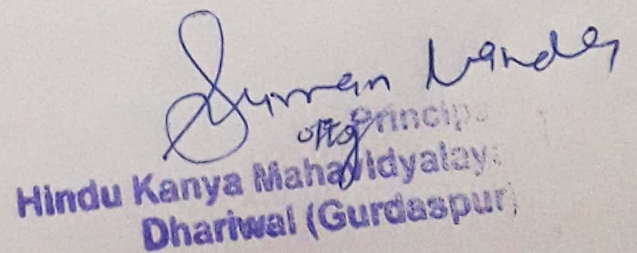 Suman
offg Principa
Hindu Kanya Mahavidyalaya
Dhariwal (Gurdaspur)